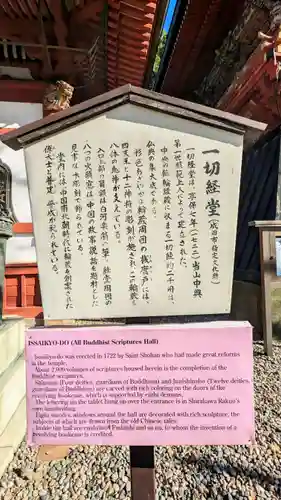 一切経堂（成田市指定文化財）
一切経堂は、享保七年（一七二二）当山中興
第一世照範上人によって建立された。
中央の転輪経蔵に納まる一切経約二千冊は、
仏典の集大成である。
ゆるやかに
四天王、十二神将の彫刻が施され、この輪蔵を
八体の鬼神が支えている。
入口の篇額は白河楽翁の筆、經堂周囲の
八つの火頭窓は中国の故事説話を題材とした
見事な木彫刻で飾られている。
堂内には中国南北朝時代に輪蔵を創案された
傅大士と普建、普成が祀られている。
ISSAIKYO-DO (All Buddhist Scriptures Hall)
Issaikyo-do was erected in 1722 by Saint Shohan who had made great reforms
in the temple.
About 2,000 volumes of scriptures housed herein is the completion of the
Buddhist Scriptures.
Shitenno (Four deities, guardians of Buddhism) and Junishinsho (Twelve deities,
guardians of Buddhism) are carved with rich coloring on the doors of the
revolving bookcase, which is supported by eight demons.
The lettering on the tablet hung up over the entrance is in Shirakawa Rakuo's
own handwriting.
Eight ornate windows around the hall are decorated with rich sculpture, the
subjects of which are drawn from the old Chinese tales.
Inside the hall are enshrined Fudaishi and sons, to whom the invention of a
revolving bookcase is credited.